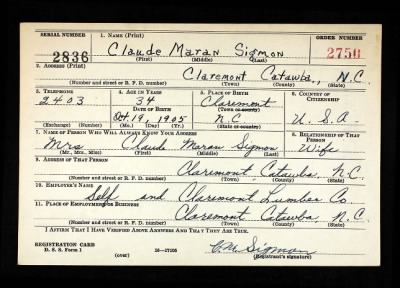 SERIAL NUMBER 1. NAME (Print) ORDER NUMBER
2836 Claude Maran Sigmon 2750
(First) (Middle) (Last)
2. ADDRESS (Print)
Claremont Catawba, N.C.
(Number and street or R. F. D. number) (Town) (County) (State)
3. TELEPHONE 4. AGE IN YEARS 5. PLACE OF BIRTH 6. COUNTRY OF CITIZENSHIP
2403 34 Claremont
DATE OF BIRTH (Town or county)
Oct. 19, 1905 N.C. U.S.A.
(Exchange) (Number) (Mo.) (Day) (Yr.) (State or country)
7. NAME OF PERSON WHO WILL ALWAYS KNOW YOUR ADDRESS 8. RELATIONSHIP OF THAT PERSON
Mrs Claude Maran Sigmon Wife
(Mr., Mrs., Miss) (First) (Middle) (Last)
9. ADDRESS OF THAT PERSON
Claremont, Catawba, N.C.
(Number and street or R. F. D. number) (Town) (County) (State)
10. EMPLOYER'S NAME
Self and Claremont Lumber Co.
11. PLACE OF EMPLOYMENT OR BUSINESS
Claremont, Catawba N.C.
(Number and street or R. F. D. number) (Town) (County) (State)
I AFFIRM THAT I HAVE VERIFIED ABOVE ANSWERS AND THAT THEY ARE TRUE.
REGISTRATION CARD C.M. Sigmon
D. S. S. Form 1 (over) 16—17105 (Registrant's signature)